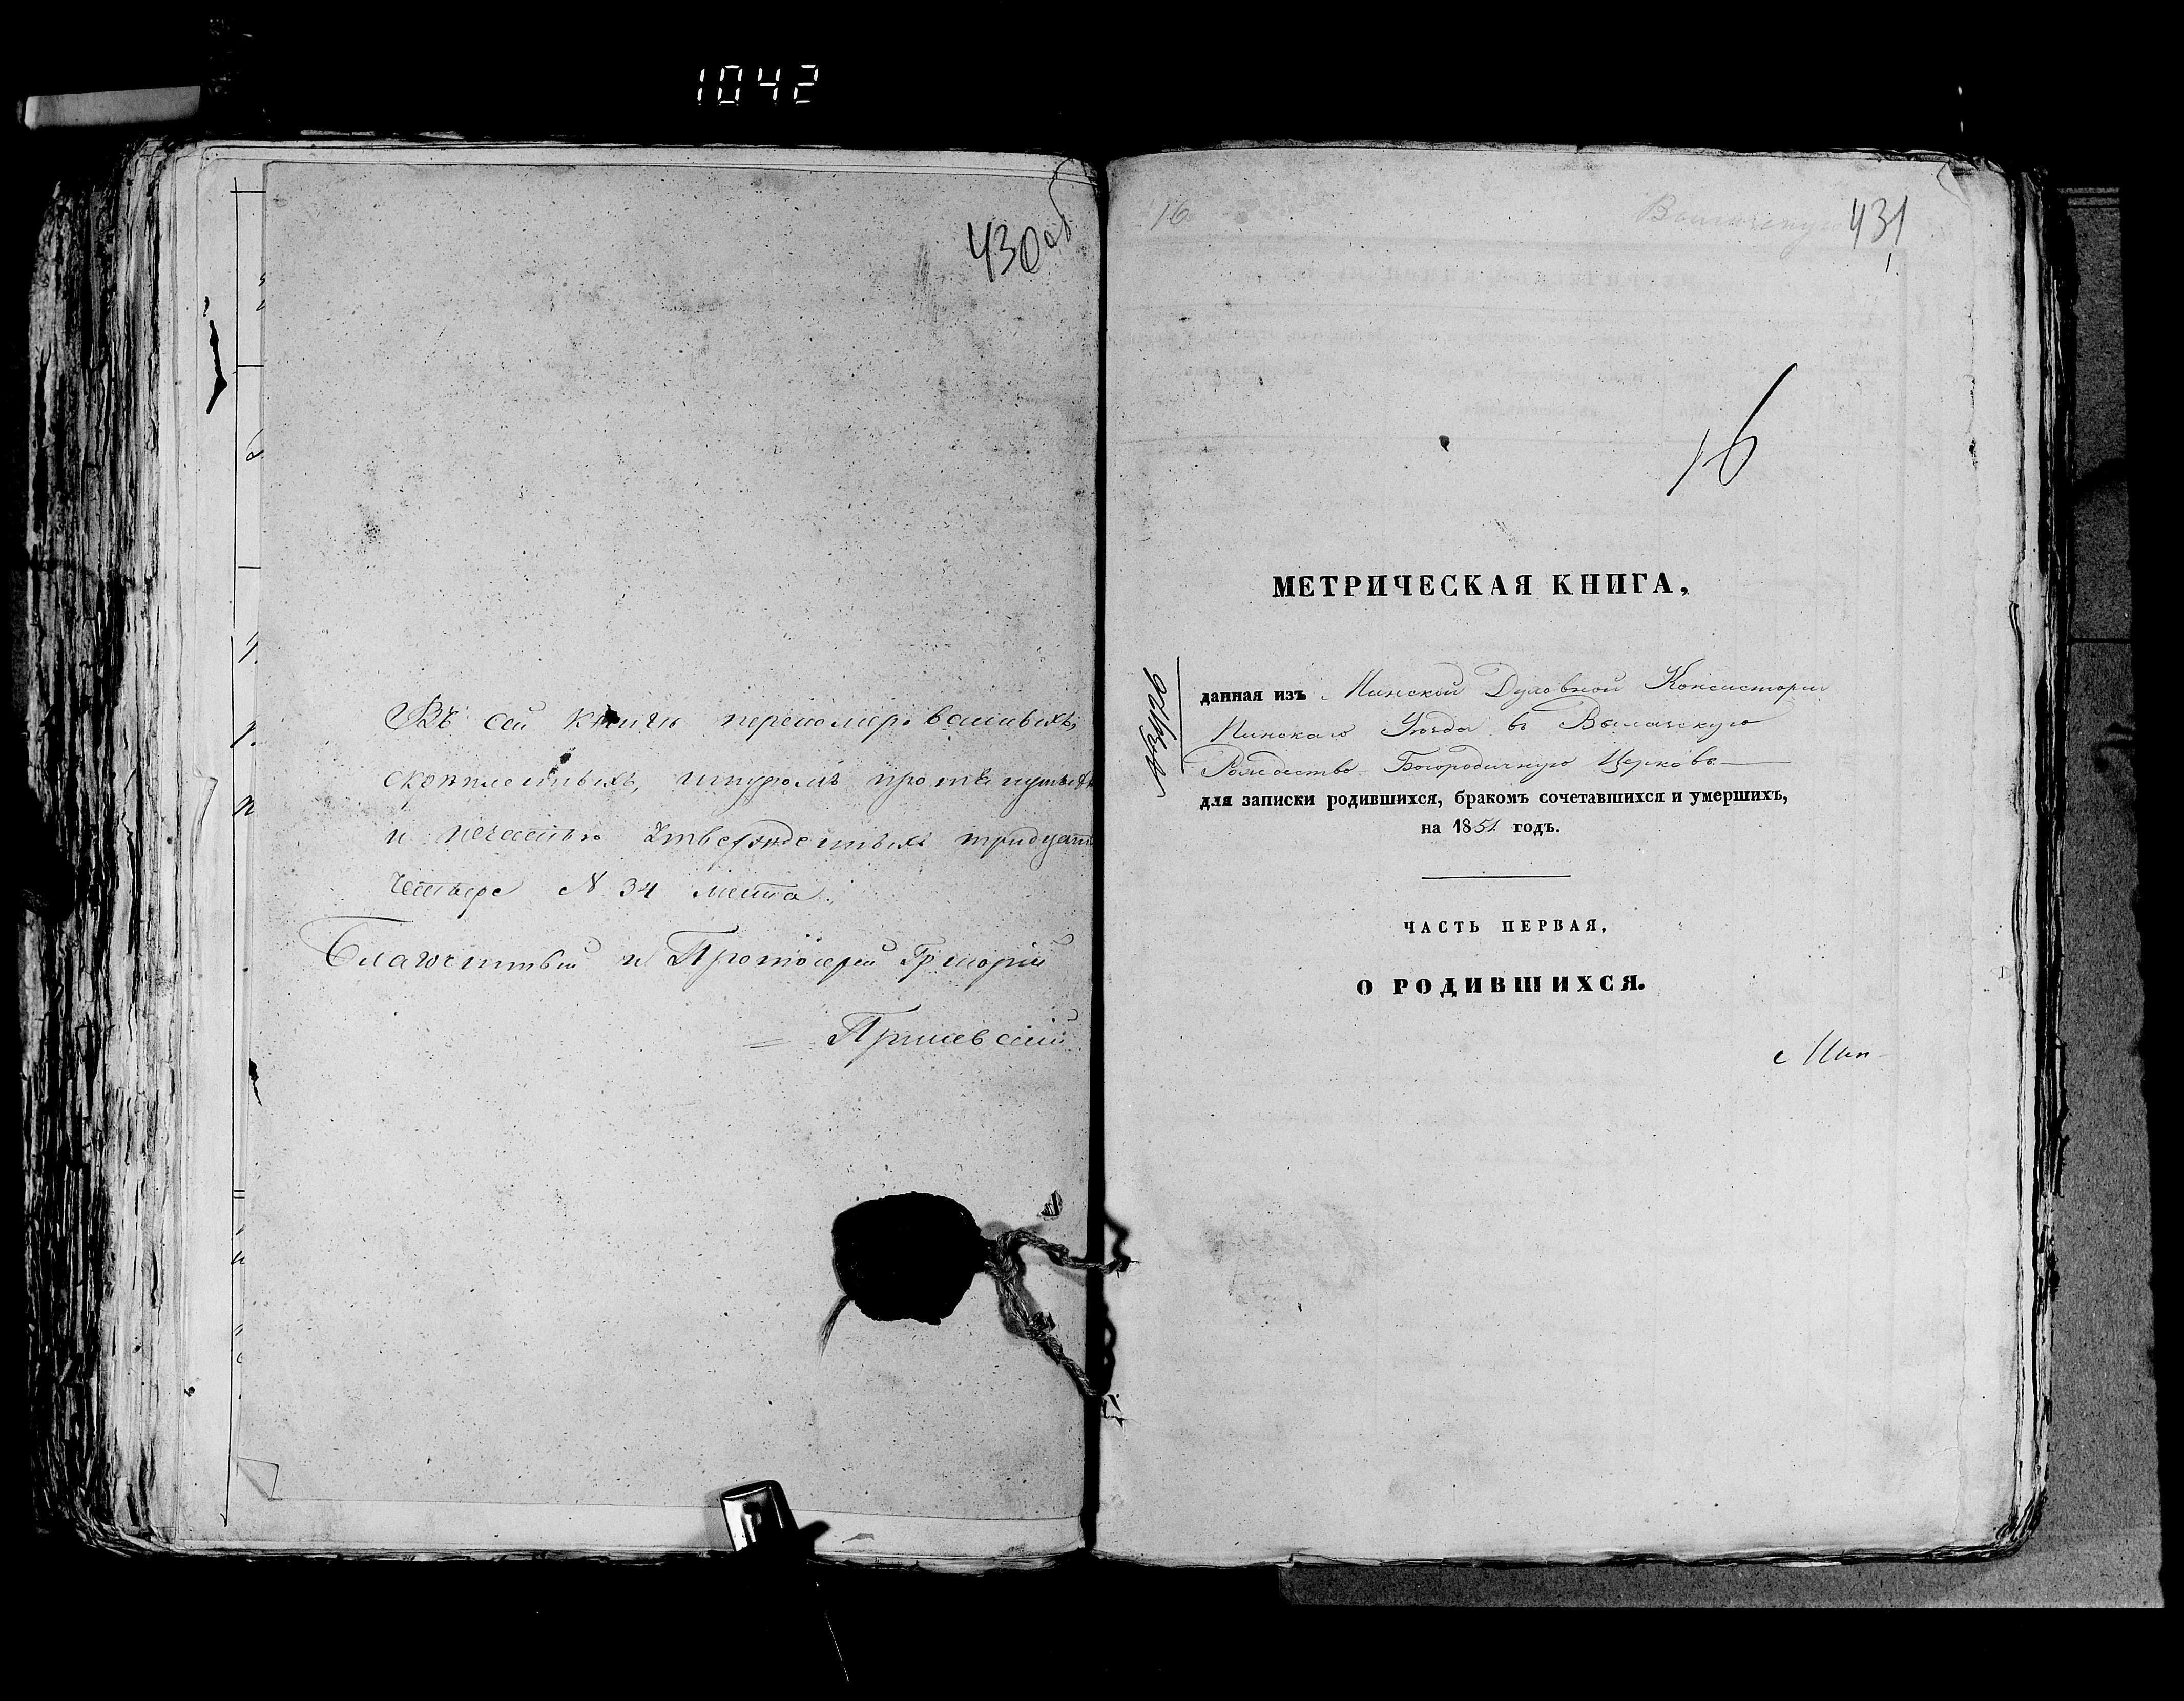 1042
430 об
Въ сей книги переномерованныхъ,
скрепленныхъ, шнуромъ протянутыхъ
и печатью утвержденныхъ тридцать
четыре N 34 листа.
Благочинный и Протоіерей Григорій
16
431
16
МЕТРИЧЕСКАЯ КНИГА,
данная изъ Минской Духовной Консисторіи
Пинскаго Уѣзда въ
Рождество Богородичную Церковь
для записки родившихся, бракомъ сочетавшихся и умершихъ,
на 1851 годъ.
ЧАСТЬ ПЕРВАЯ,
О РОДИВШИХСЯ.
Мин-